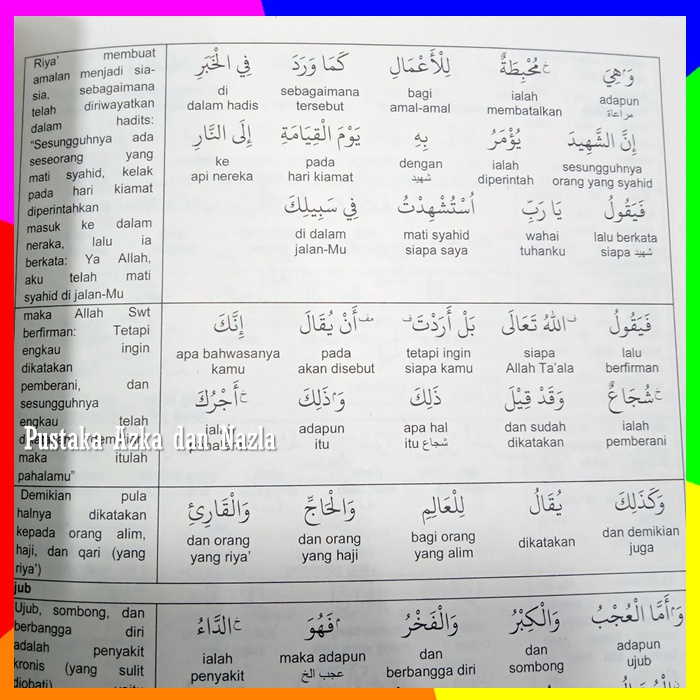 Riya' membuat
amalan menjadi sia-
sia, sebagaimana
telah diriwayatkan
dalam hadits:
"Sesungguhnya ada
seseorang yang
mati syahid, kelak
pada hari kiamat
diperintahkan
masuk ke dalam
neraka, lalu ia
berkata: Ya Allah,
aku telah mati
syahid di jalan-Mu
وَهِيَ مُحْبِطَةٌ لِلْأَعْمَالِ كَمَا وَرَدَ فِي الْخَبَرِ
adapun ialah bagi sebagaimana di
مراعاة membatalkan amal-amal tersebut dalam hadis
إِنَّ الشَّهِيدَ يُؤْمَرُ بِهِ يَوْمَ الْقِيَامَةِ إِلَى النَّارِ
sesungguhnya ialah dengan pada ke
orang yang syahid diperintah شهيد hari kiamat api nereka
فَيَقُولُ يَا رَبِّ اُسْتُشْهِدْتُ فِي سَبِيلِكَ
lalu berkata wahai mati syahid di dalam
siapa شهيد tuhanku siapa saya jalan-Mu
maka Allah Swt
berfirman: Tetapi
engkau ingin
dikatakan
pemberani, dan
sesungguhnya
engkau telah
maka itulah
pahalamu"
فَيَقُولُ اللهُ تَعَالَى بَلْ أَرَدْتَ أَنْ يُقَالَ إِنَّكَ
lalu siapa tetapi ingin pada apa bahwasanya
berfirman Allah Ta'ala siapa kamu akan disebut kamu
شُجَاعٌ وَقَدْ قِيْلَ ذَلِكَ وَذَلِكَ أَجْرُكَ
ialah dan sudah apa hal adapun ialah
pemberani dikatakan itu شجاع itu
Pustaka Azka dan Nazla
Demikian pula
halnya dikatakan
kepada orang alim,
haji, dan qari (yang
riya')
وَكَذَلِكَ يُقَالُ لِلْعَالِمِ وَالْحَاجِّ وَالْقَارِئِ
dan demikian dikatakan bagi orang dan orang dan orang
juga yang alim yang haji yang riya'
jub
Ujub, sombong, dan
berbangga diri
adalah penyakit
kronis (yang sulit
diobati)
وَأَمَّا الْعُجْبُ وَالْكِبْرُ وَالْفَخْرُ فَهُوَ الدَّاءُ
adapun dan dan maka adapun ialah
ujub sombong berbangga diri عجب الخ penyakit